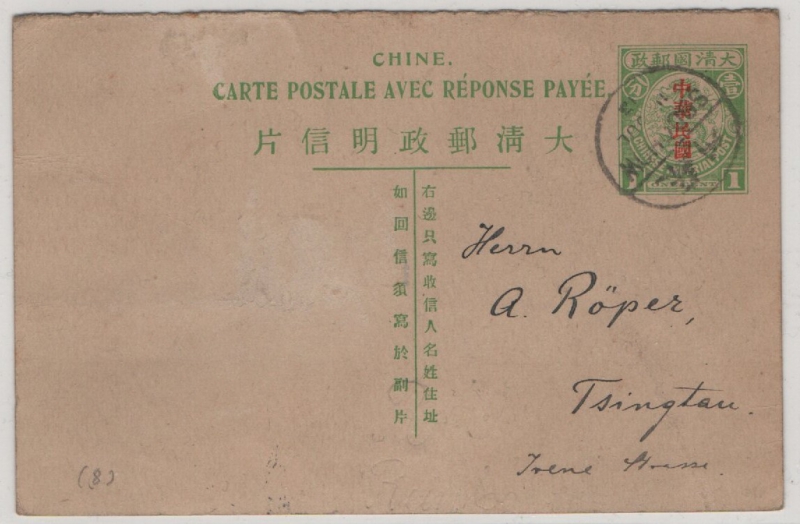 CHINE.
CARTE POSTALE AVEC RÉPONSE PAYÉE.
片信明政郵清大
右邊只寫收信人名姓住址
如回信須寫於副片
政郵國清大
分 壹
中華民國
1
Herrn
A. Röper,
Tsingtau.
Irene Strasse.
(8)